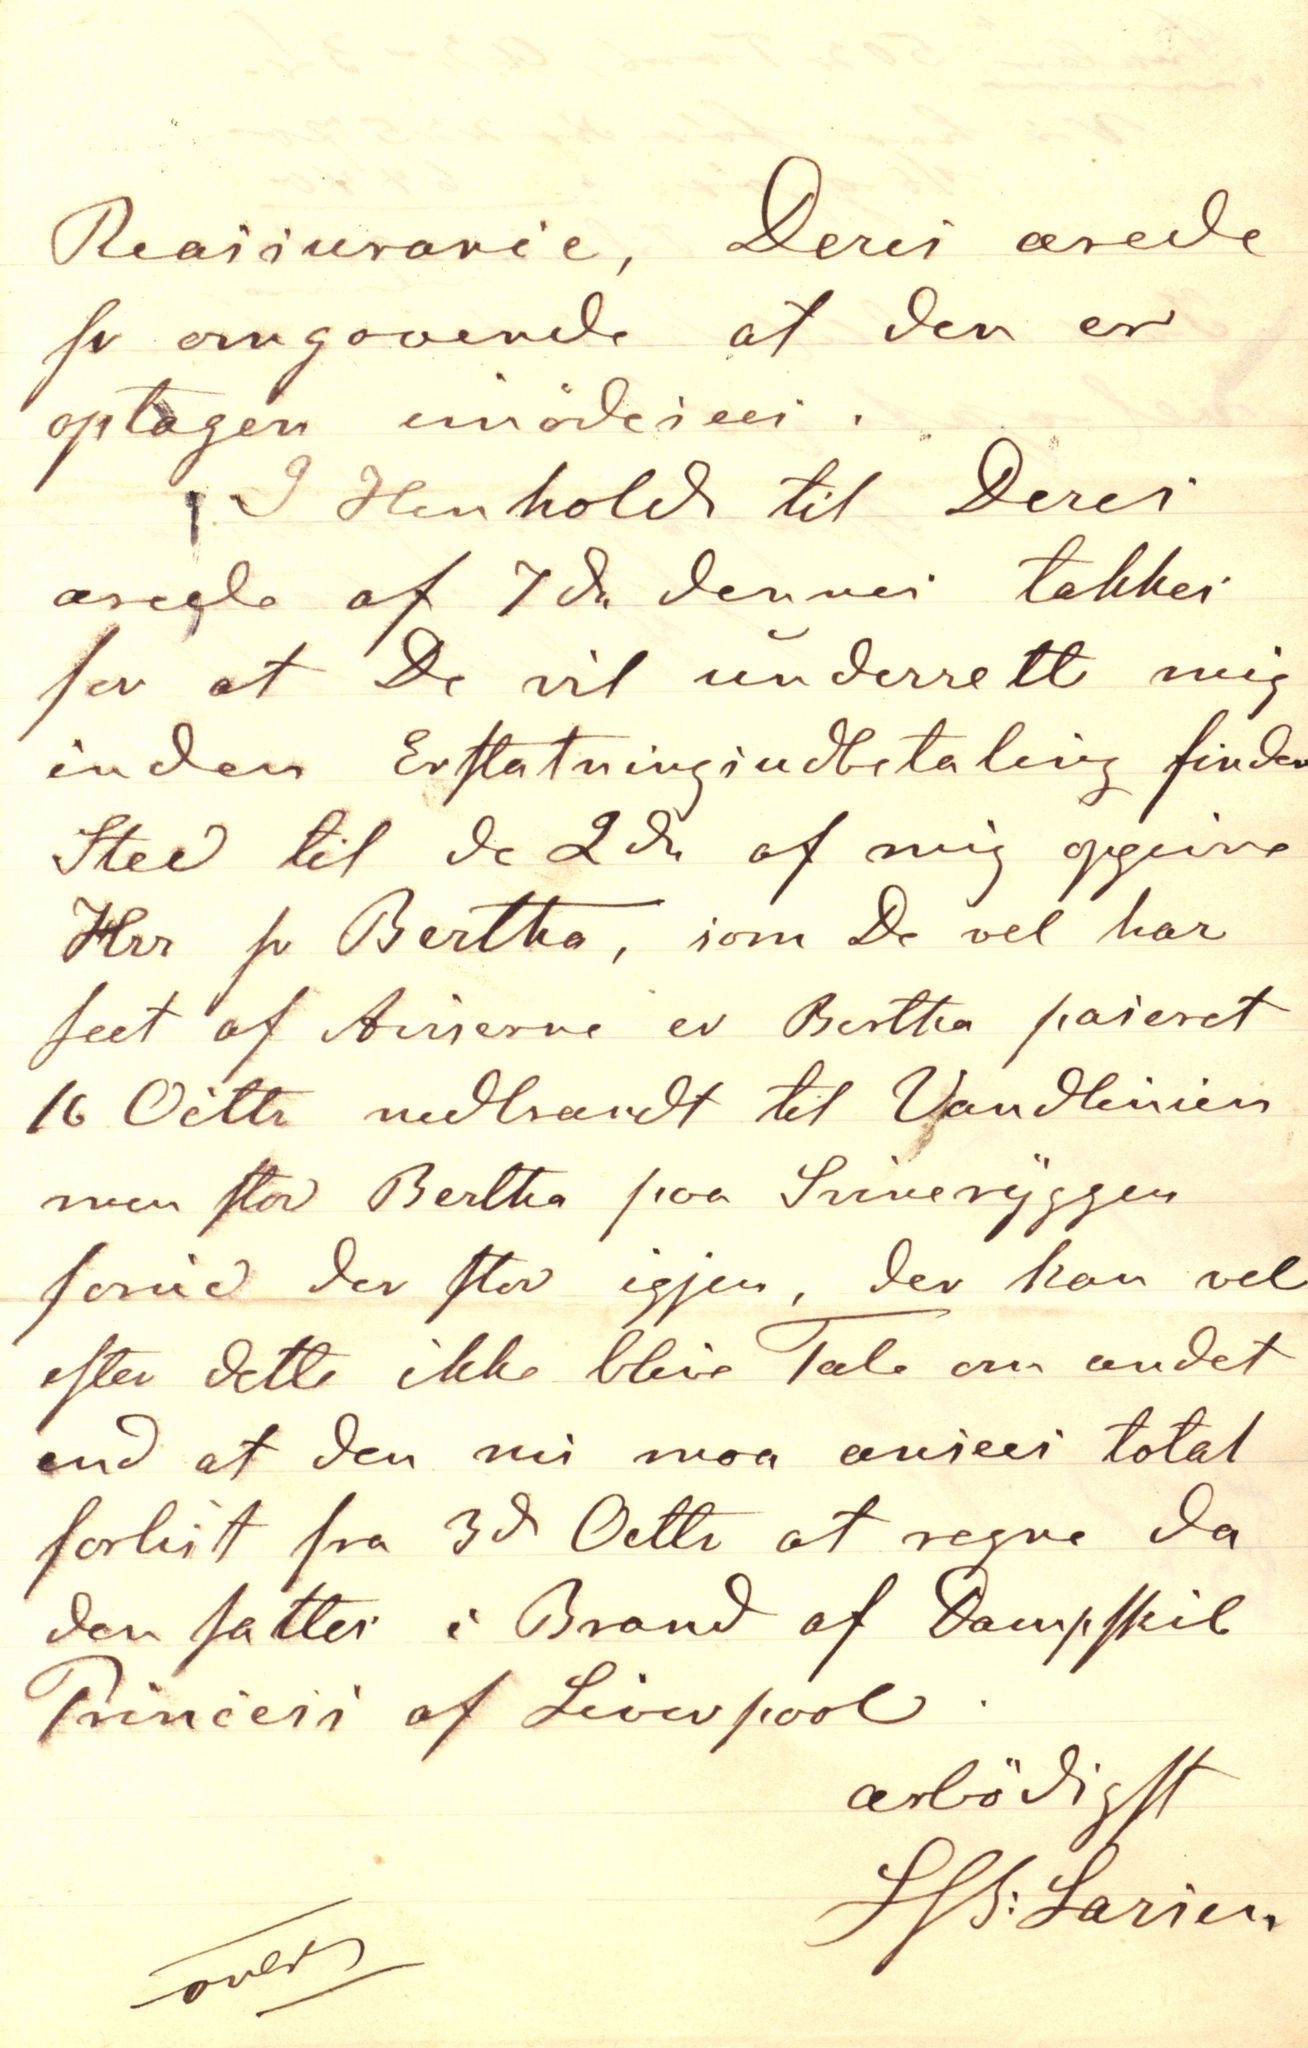 Reassurance, Deres ærede
pr omgaaende at den er
optagen imødesees.
I Henhold til Deres
ærede af 7 ds dennes takkes
for at De vil underrett mig
inden Erstatningsudbetaling finder
Sted til de 2 ds af mig opgivne
Hrr pr Bertha, som De vel har
seet af Aviserne er Bertha passeret
16 Octbr nedbrandt til Vandlinien
men stod Bertha paa Svinerÿggen
forud der stod igjen, der kan vel
efter dette ikke blive Tale om andet
end at den nu maa ansees total
forlist fra 3 ds Octbr at regne da
den sattes i Brand af Dampskib
Princess af Liverpool.
ærbödigst
Larsen
over